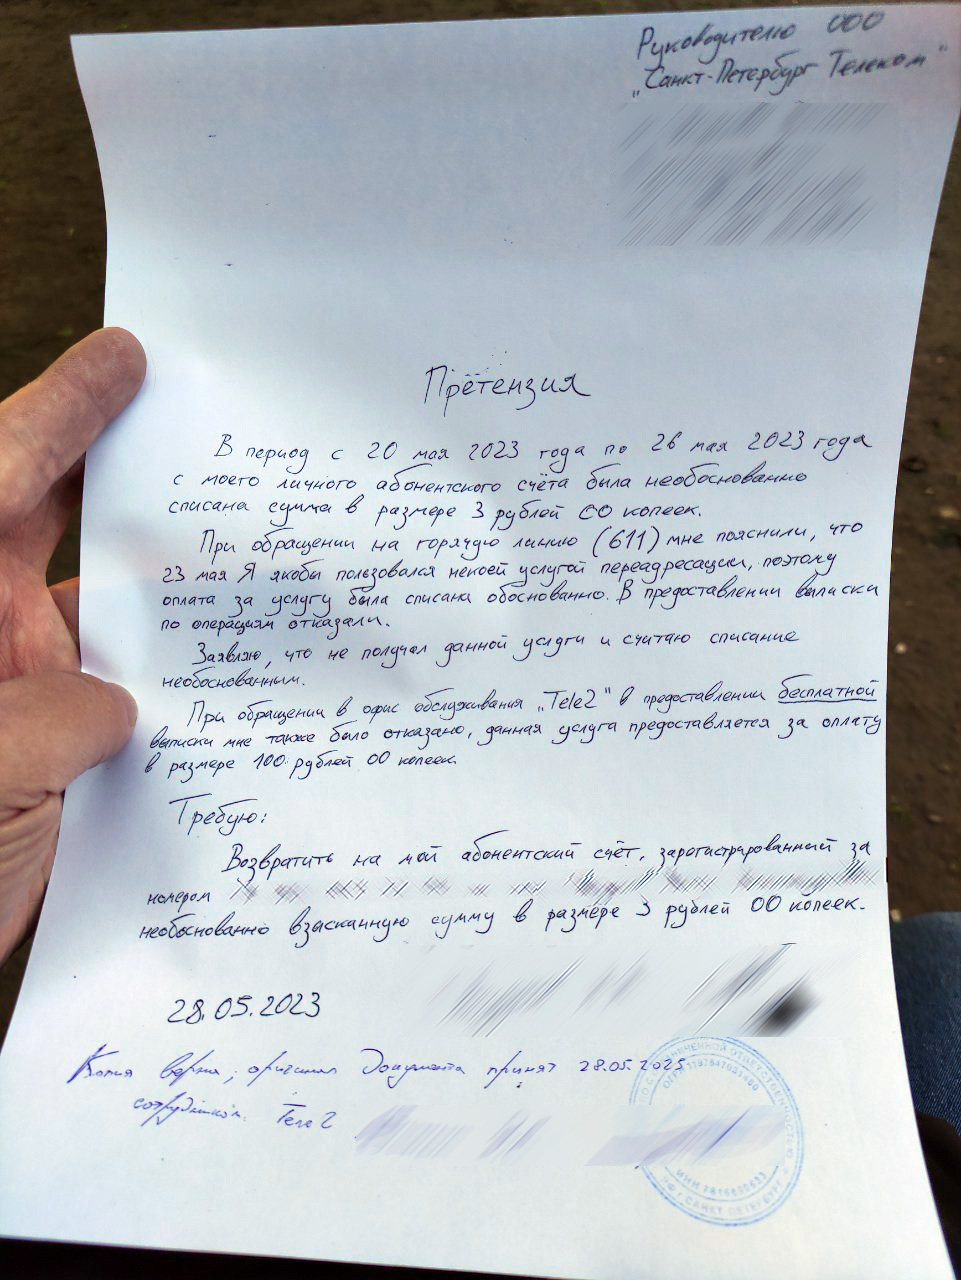 Руководителю ООО
„Санкт-Петербург Телеком"
Претензия
В период с 20 мая 2023 года по 26 мая 2023 года
с моего личного абонентского счёта была необоснованно
списана сумма в размере 3 рублей 00 копеек.
При обращении на горячую линию (611) мне пояснили, что
23 мая Я якобы пользовался некоей услугой переадресации, поэтому
оплата за услугу была списана обоснованно. В предоставлении выписки
по операциям отказали.
Заявляю, что не получал данной услуги и считаю списание
необоснованным.
При обращении в офис обслуживания „Tele2" в предоставлении бесплатной
выписки мне также было отказано, данная услуга предоставляется за оплату
в размере 100 рублей 00 копеек.
Требую:
Возвратить на мой абонентский счёт, зарегистрированный за
номером
необоснованно взысканную сумму в размере 3 рублей 00 копеек.
28.05.2023
Копия верна, оригинал Документа принят 28.05.2023
сотрудником Теле2
ОГРАНИЧЕННОЙ ОТВЕТСТВЕННОСТЬЮ
ОГРН
ИНН
САНКТ-ПЕТЕРБУРГ